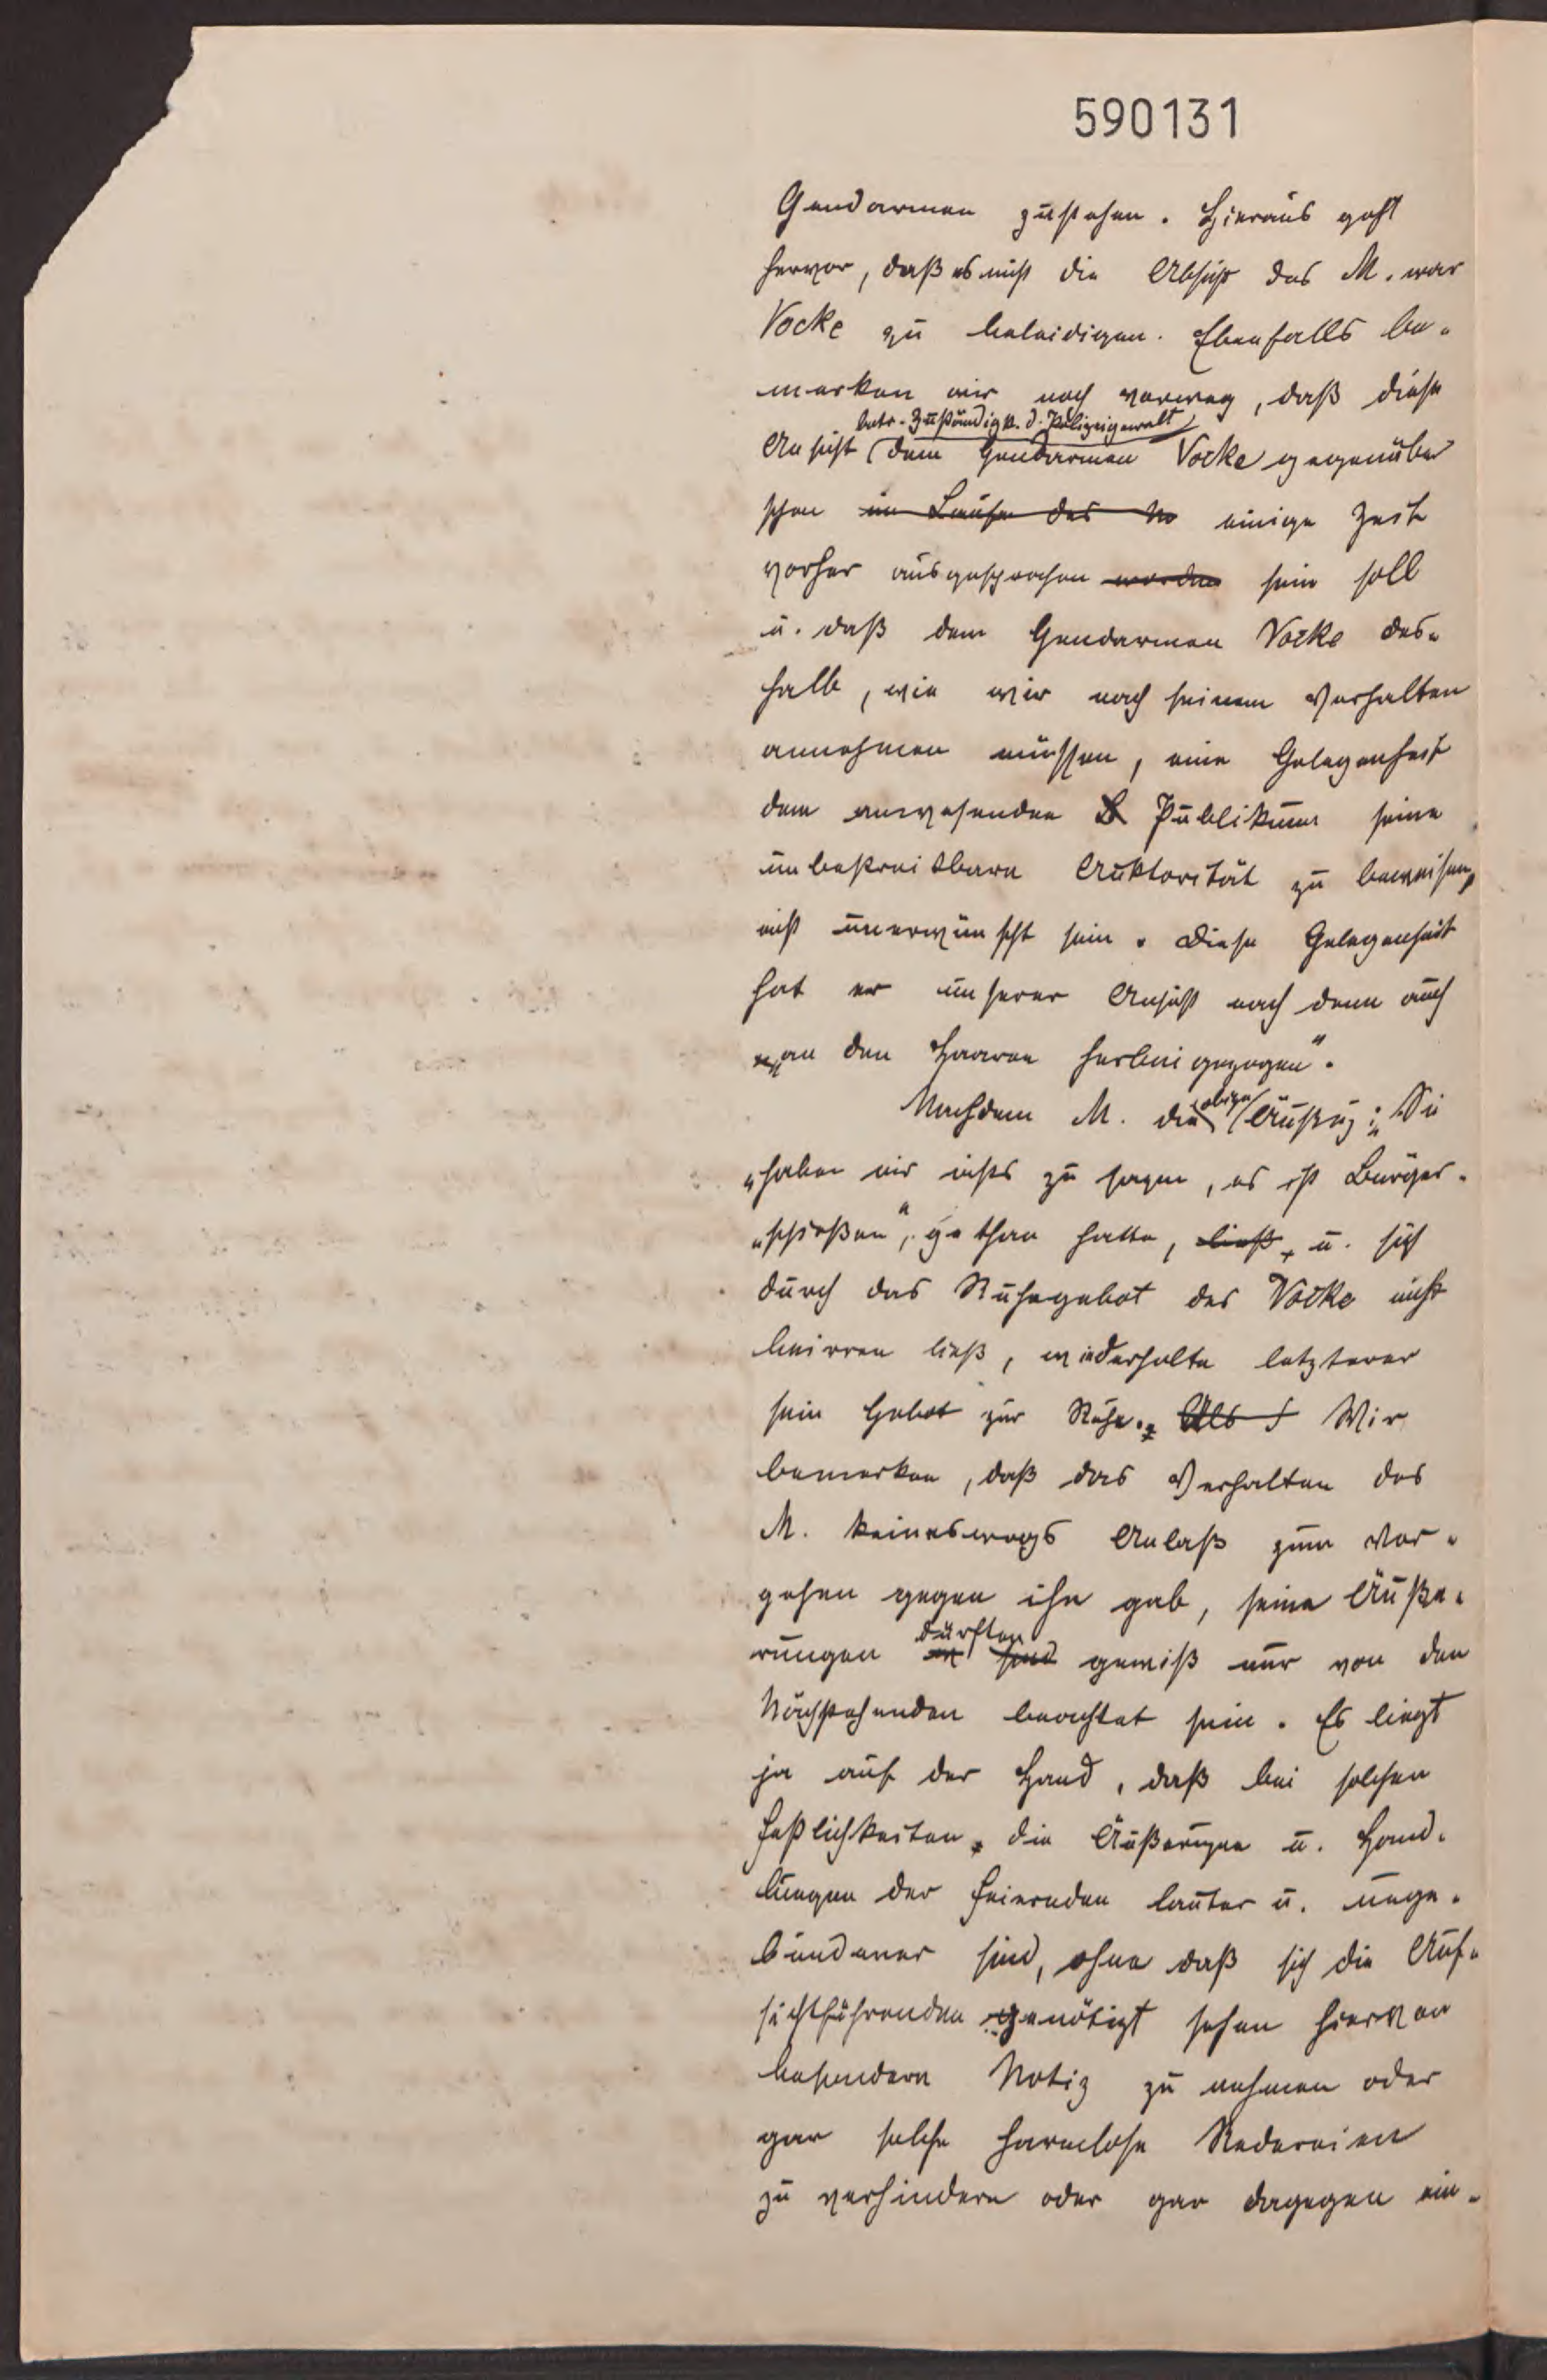 590131
Gendarmen zustehen. Hieraus geht
hervor, daß es nicht die Absicht des M. war
Vocke zu beleidigen. Ebenfalls be-
merken wir noch vorweg, daß diese
betr. Zuständigk. d. Polizeigewalt
Ansicht (dem Gendarmen Vocke gegenüber
schon im Laufe des einige Zeit
vorher ausgesprochen worden sein soll
u. daß dem Gendarmen Vocke des-
halb, wie wir nach seinem Verhalten
annehmen müssen, eine Gelegenheit
dem anwesenden Publikum seine
unbestreitbare Auktorität zu beweisen,
nicht unerwünscht sein. Diese Gelegenheit
hat er unserer Ansicht nach denn auch
„an den Haaren herbeigezogen“.
Nachdem M. die obige Äußerg: „Sie
„haben mir nichts zu sagen, es ist Bürger-
„schießen“, gethan hatte, ließ, u. sich
durch das Ruhegebot des Vocke nicht
beirren ließ, wiederholte letzterer
sein Gebot zur Ruhe. Als Wir
bemerken, daß das Verhalten des
M. keineswegs Anlaß zum Vor-
gehen gegen ihn gab, seine Äuße-
dürften
rungen sind gewiß nur von den
Nächststehenden beachtet sein. Es liegt
ja auf der Hand, daß bei solchen
Festlichkeiten, die Äußerungen u. Hand-
lungen der Feiernden lauter u. unge-
bundener sind, ohne daß sich die Auf-
sichtführenden genötigt sehen hiervon
besondern Notiz zu nehmen oder
gar solche harmlose Redereien
zu verhindern oder gar dagegen ein-